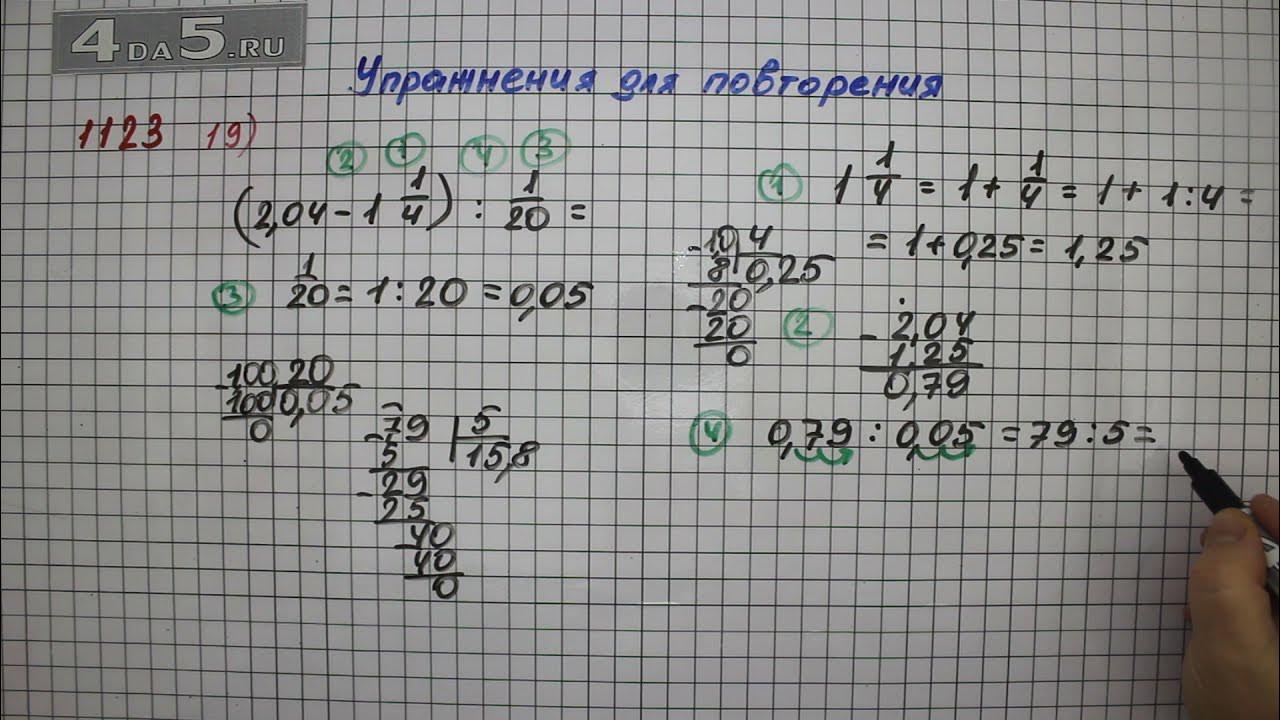 4DA5.RU
Упражнения для повторения
1123 19)
② ① ④ ③
(2,04 - 1 1/4) : 1/20 =
① 1 1/4 = 1 + 1/4 = 1 + 1:4 =
= 1 + 0,25 = 1,25
- 10 | 4
8 | 0,25
- 20
20
0
③ 1/20 = 1 : 20 = 0,05
② - 2,04
1,25
0,79
- 100 | 20
100 | 0,05
0
- 79 | 5
5 | 15,8
- 29
25
- 40
40
0
④ 0,79 : 0,05 = 79 : 5 =